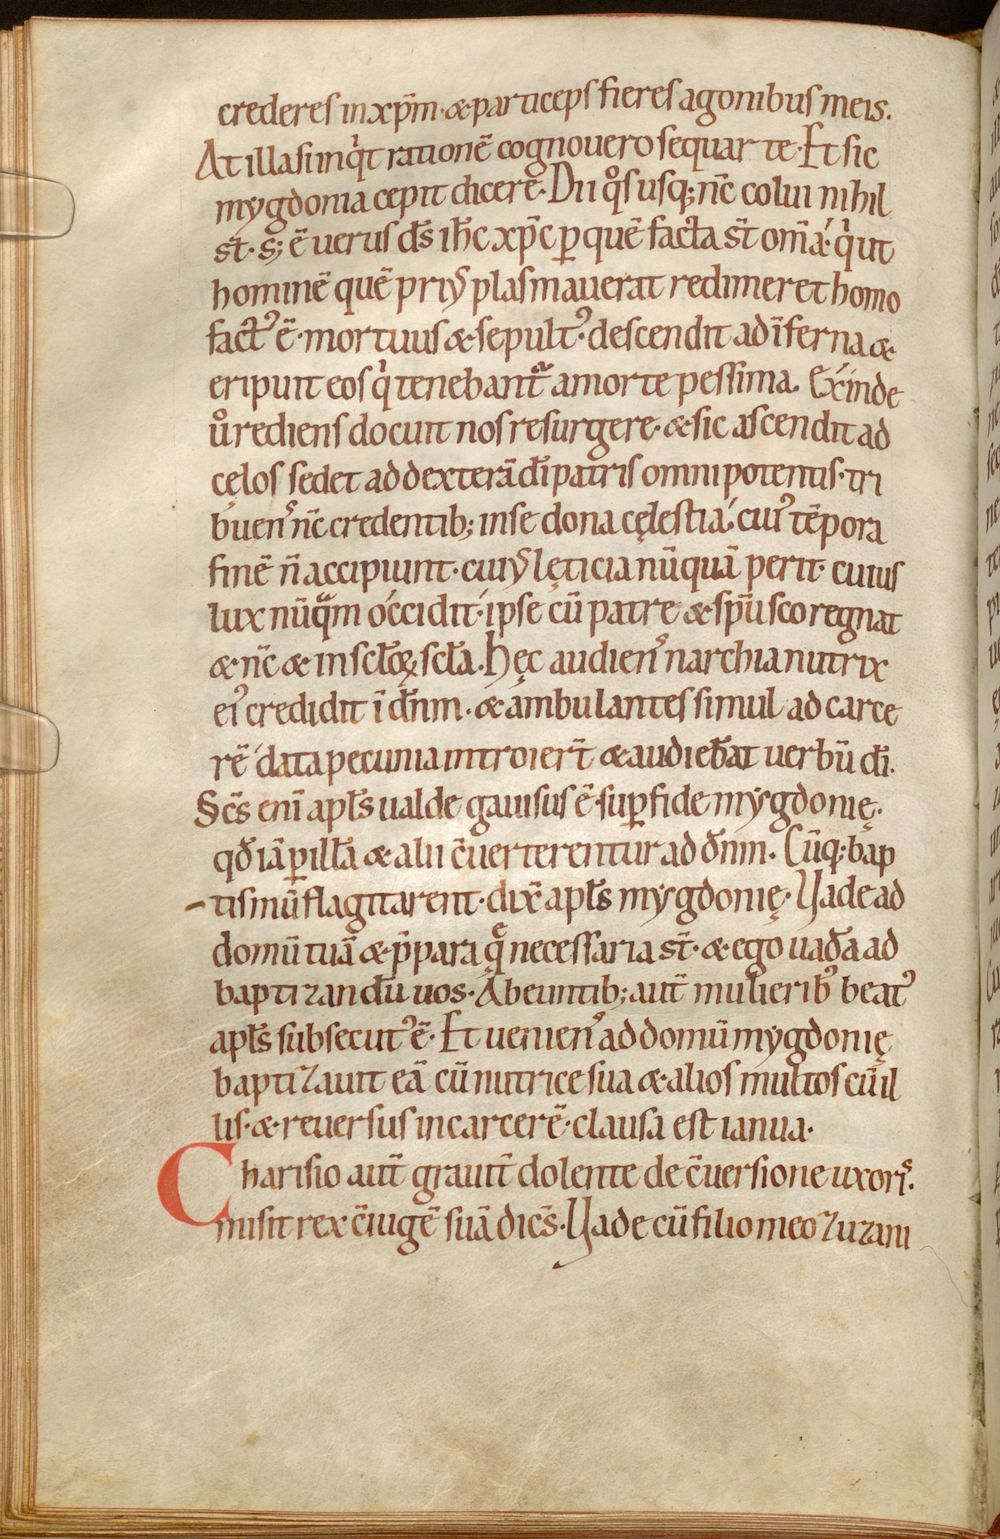 crederes in xp̄m· & particeps fieres agonibus meis.
At illa si inqͥt rationē cognouero sequar te· Et sic
mygdonia cepit dicere· Dii qͦs usq; nc̄ colui nihil
st̄· S; ē uerus ds̄ ihc̄ xp̄c ꝑ quē facta st̄ om̄a· qͥ ut
hominē quē priꝰ plasmauerat redimeret homo
factꝰ ē· mortuus & sepultꝰ descendit ad īferna &
eripuit eos qͥ tenebantᷣ a morte pessima. Exinde
uͦ rediens docuit nos resurgere· & sic ascendit ad
cęlos sedet ad dexterā dī patris omnipotentis· tri
buenꝰ nc̄ credentib; in se dona cęlestia· cuiꝰ tēpora
finē n̄ accipiunt· cuiꝰ lęticia nūquā perit· cuius
lux nūqᷓm occidit· ipse cū patre & spū sco regnat
& nc̄ & in sclōꝝ scla̅. Hęc audienꝰ narchia nutrix
eiꝰ credidit ī dn̄m· & ambulantes simul ad carce
rē data pecunia introiert̄ & audiebāt uerbū dī.
Sc̄s enī apls̄ ualde gauisus ē suꝑ fide mygdonię·
qđ iā ꝑ illā & alii c̄uerterentur ad dn̄m. Cūq; bap
tismū flagitarent· dix̄ apls̄ mygdonię· Uade ad
domū tuā & p̄para qᷓ necessaria st̄· & ego uadā ad
baptizandū uos· Abeuntib; aut̄ mulieribꝰ beatꝰ
apls̄ subsecutꝰ ē· Et uenienꝰ ad domū mygdonię
baptizauit eā cū nutrice sua & alios multos cū il
lis· & reuersus in carcerē· clausa est ianua·
Charisio aut̄ grauit̄ dolente de c̄uersione uxorꝭ·
misit rex c̄iugē suā dicꝭs· Uade cū filio meo zuzani